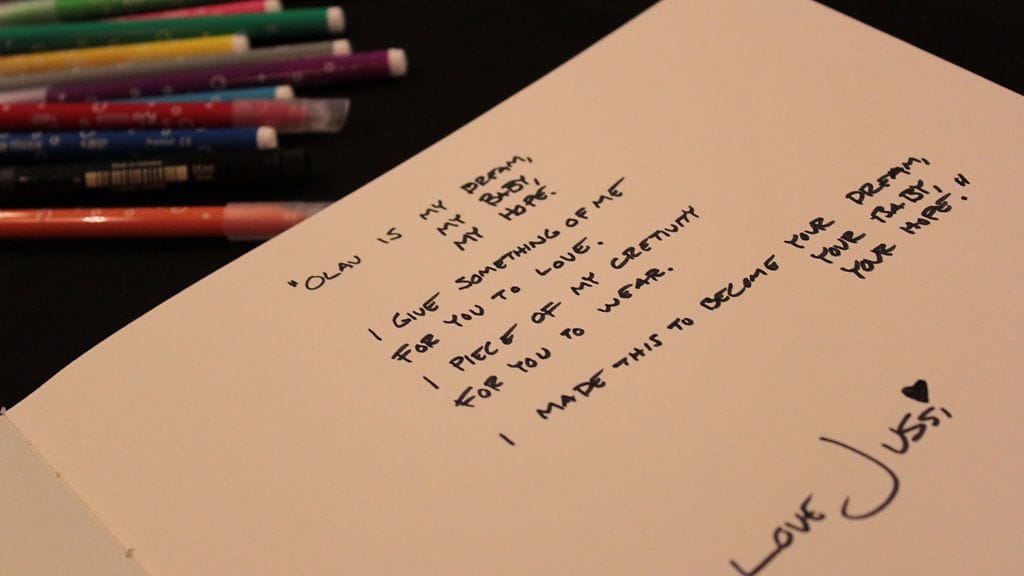 "OLAV IS MY DREAM,
MY BABY,
MY HOPE.
I GIVE SOMETHING OF ME
FOR YOU TO LOVE.
1 PIECE OF MY CRETIVITY
FOR YOU TO WEAR.
I MADE THIS TO BECOME YOUR DREAM,
YOUR BABY,
YOUR HOPE."
LOVE JUSSI